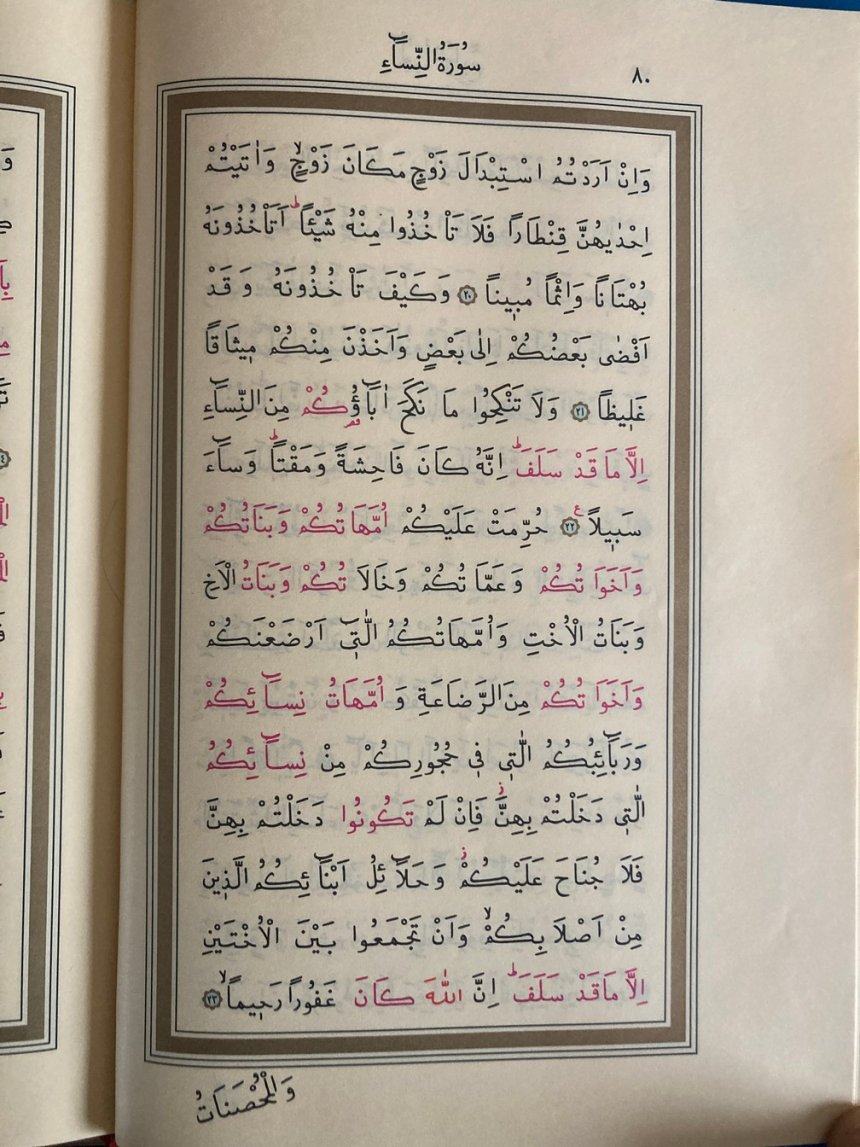 سُورَةُ النِّسَاءِ
٨٠
وَاِنْ اَرَدْتُمُ اسْتِبْدَالَ زَوْجٍ مَكَانَ زَوْجٍۙ وَاٰتَيْتُمْ
اِحْدٰيهُنَّ قِنْطَاراً فَلَا تَأْخُذُوا مِنْهُ شَيْـٔاًۜ اَتَأْخُذُونَهُ
بُهْتَاناً وَاِثْماً مُبٖيناً ﴿٢٠﴾ وَكَيْفَ تَأْخُذُونَهُ وَقَدْ
اَفْضٰى بَعْضُكُمْ اِلٰى بَعْضٍ وَاَخَذْنَ مِنْكُمْ مٖيثَاقاً
غَلٖيظاً ﴿٢١﴾ وَلَا تَنْكِحُوا مَا نَكَحَ اٰبَٓاؤُ۬كُمْ مِنَ النِّسَٓاءِ
اِلَّا مَا قَدْ سَلَفَۜ اِنَّهُ كَانَ فَاحِشَةً وَمَقْتاًۜ وَسَٓاءَ
سَبٖيلاً ﴿٢٢﴾ حُرِّمَتْ عَلَيْكُمْ اُمَّهَاتُكُمْ وَبَنَاتُكُمْ
وَاَخَوَاتُكُمْ وَعَمَّاتُكُمْ وَخَالَاتُكُمْ وَبَنَاتُ الْاَخِ
وَبَنَاتُ الْاُخْتِ وَاُمَّهَاتُكُمُ الّٰتٖٓي اَرْضَعْنَكُمْ
وَاَخَوَاتُكُمْ مِنَ الرَّضَاعَةِ وَاُمَّهَاتُ نِسَٓائِكُمْ
وَرَبَٓائِبُكُمُ الّٰتٖي فٖي حُجُورِكُمْ مِنْ نِسَٓائِكُمُ
الّٰتٖي دَخَلْتُمْ بِهِنَّؗ فَاِنْ لَمْ تَكُونُوا دَخَلْتُمْ بِهِنَّ
فَلَا جُنَاحَ عَلَيْكُمْؗ وَحَلَٓائِلُ اَبْنَٓائِكُمُ الَّذٖينَ
مِنْ اَصْلَابِكُمْۙ وَاَنْ تَجْمَعُوا بَيْنَ الْاُخْتَيْنِ
اِلَّا مَا قَدْ سَلَفَۜ اِنَّ اللّٰهَ كَانَ غَفُوراً رَحٖيماًۙ ﴿٢٣﴾
وَالْمُحْصَنَاتُ